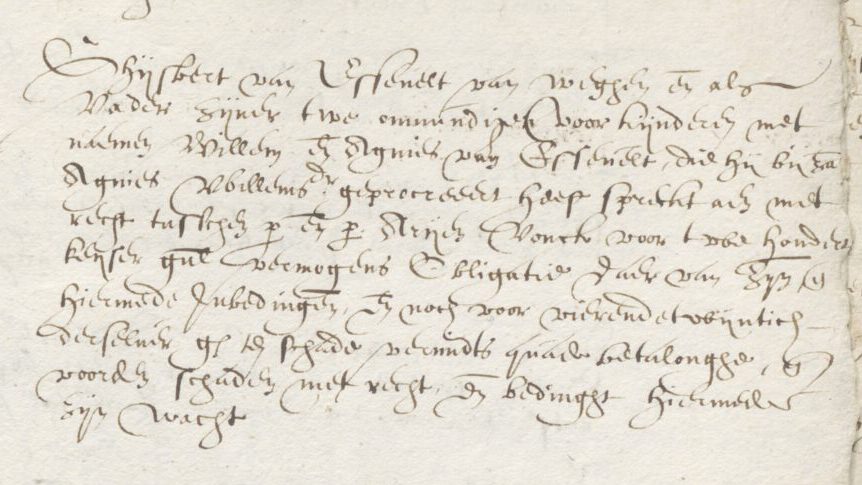 Ghijsbert van Essenelt van weghen en als
Vader zijner twe onmundigen voorkijnderen met
naemen Willem en Agnies van Essenelt, die hij bij za
Agnies Wbillems dr geprocreeert heeft sprecht aen met
recht tusschen p en p Arijen Vonck voor twbe hondert
keyser gul vermogens Obligatie daer van zijn
hiermede Inbedingen, en noch voor vierendetwbijntich
derseluer gl ten schade vermidts quade betalonghe,
voorden schaden met recht, en bedinght hiermede
zijn wacht